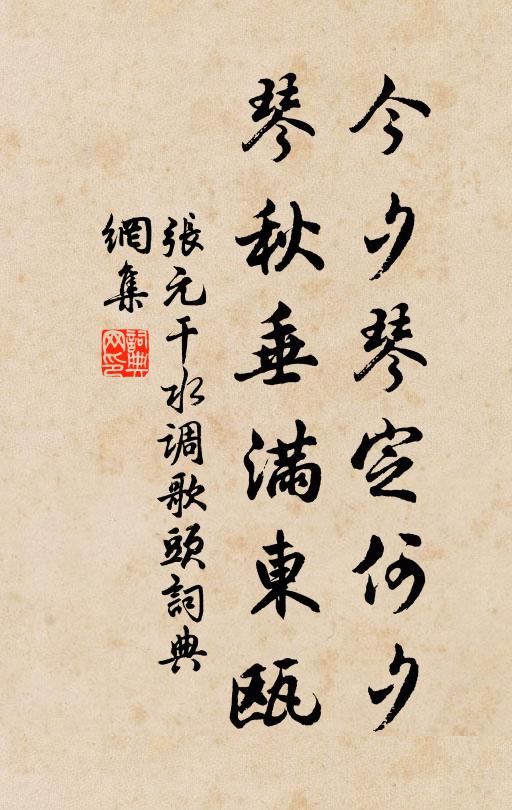 今夕琴定何夕
琴秋垂滿東甌
張元干水調歌頭詞典
網集
詞典
网印